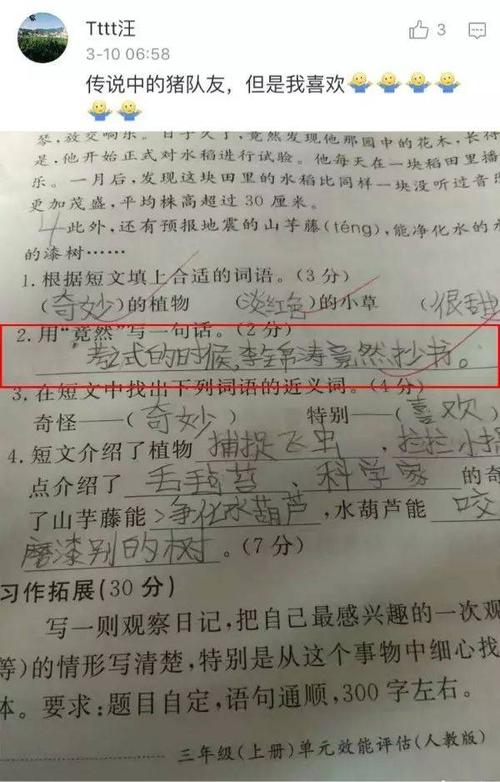 Tttt汪
3
3-10 06:58
传说中的猪队友，但是我喜欢
琴，放交响乐。日子久了，竟然发现他那园中的花木，长得
是，他开始正式对水稻进行试验。他每天在一块稻田里播
乐。一月后，发现这块田里的水稻比同样一块没听过音
更加茂盛，平均株高超过 30 厘米。
4 此外，还有预报地震的山芋藤(téng)，能净化水的水
的漆树……
1. 根据短文填上合适的词语。(3 分)
(奇妙)的植物 (淡红色)的小草 (很甜
2. 用“竟然”写一句话。(2 分)
考试的时候，李锦涛竟然抄书。
3. 在短文中找出下列词语的近义词。(4 分)
奇怪——(奇妙) 特别——(喜欢)
4. 短文介绍了植物 捕捉飞虫、拉拉小提
点介绍了 毛毡苔、科学家 的奇
了山芋藤能 净化水葫芦，水葫芦能 咬
磨漆别的树。(7 分)
习作拓展(30 分)
写一则观察日记，把自己最感兴趣的一次观
等)的情形写清楚，特别是从这个事物中细心找
体。要求：题目自定，语句通顺，300 字左右。
三年级(上册)单元效能评估(人教版)